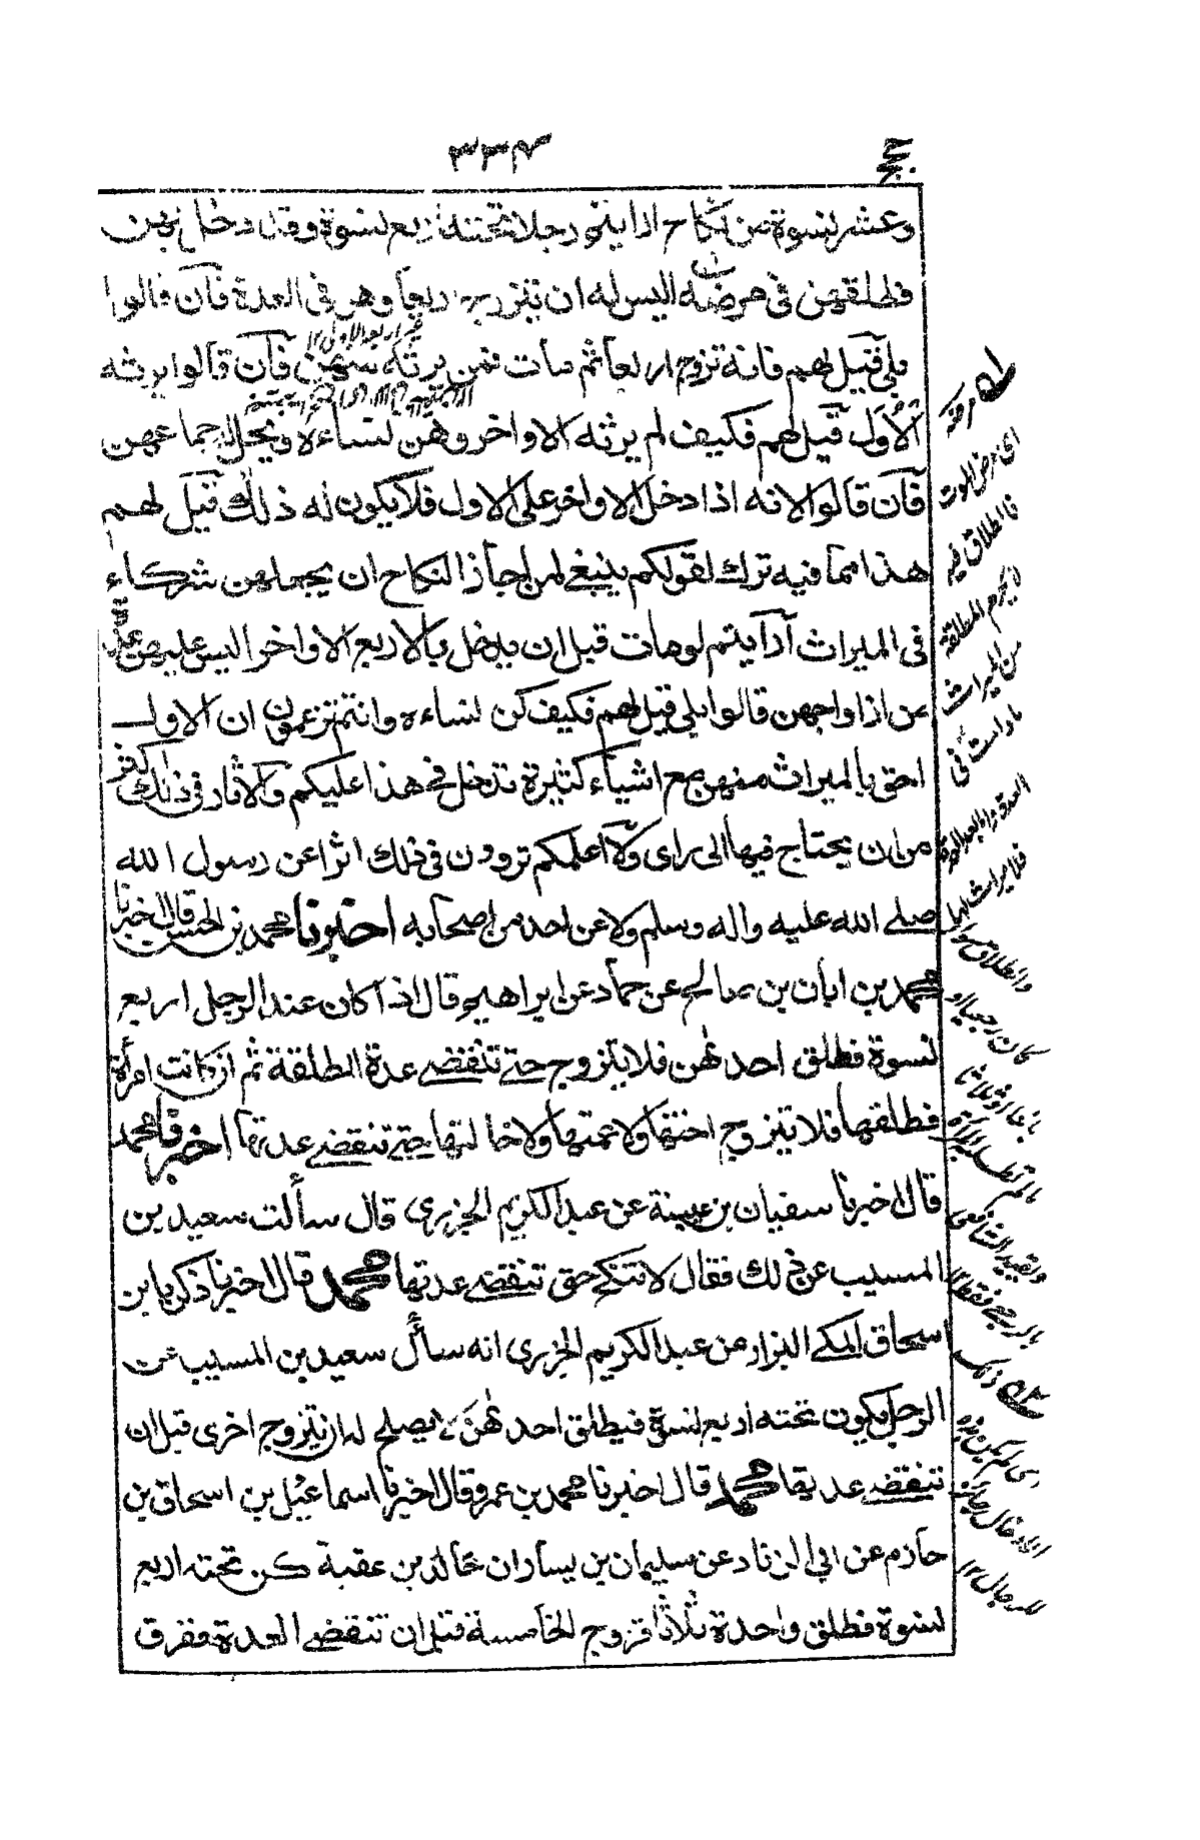 ٣٣٤
وعشر نسوة من نكاح ارايتم رجلا تحته اربع نسوة وقد دخل بهن
فطلقهن في مرضه اليس له ان يتزوج اربعا وهن في العدة فان قالوا
بلى قيل لهم فانه تزوج اربعا ثم مات فمن يرثه منهن فان قالوا يرثه
الأول قيل لهم فكيف لم يرثه الاواخر وهن نساءه ويحل له جماعهن
فان قالوا لانه اذا دخل الاواخر على الاول فلا يكون له ذلك قيل لهم
هذا مما فيه ترك لقولكم ينبغي لمن اجاز النكاح ان يجعلهن شركاء
في الميراث أرأيتم لو مات قبل ان يدخل بالاربع الاواخر اليس عليهن عدة
من ازواجهن قالوا بلى قيل لهم فكيف كن نساءه وانتم تزعمون ان الاول
احق بالميراث منهن مع اشياء كثيرة تدخل في هذا عليكم والآثار في ذلك اكثر
من ان يحتاج فيها الى راى ولا اعلمكم تروون في ذلك اثرا عن رسول الله
صلى الله عليه واله وسلم ولا عن احد من اصحابه اخبرنا محمد بن الحسن قال اخبرنا
محمد بن ابان بن صالح عن حماد عن ابراهيم قال اذا كان عند الرجل اربع
نسوة فطلق احدٰهن فلا يتزوج حتى تنقضي عدة المطلقة ثم ان كانت امرأة
فطلقها فلا يتزوج اختها ولا عمتها ولا خالتها حتى تنقضي عدتها اخبرنا محمد
قال اخبرنا سفيان بن عيينة عن عبد الكريم الجزري قال سألت سعيد بن
المسيب عن ذلك فقال لا تنكح حتى تنقضي عدتها محمد قال اخبرنا زكريا بن
اسحاق المكي البزار عن عبد الكريم الجزري انه سأل سعيد بن المسيب عن
الرجل يكون تحته اربع نسوة فيطلق احدٰهن يصلح له ان يتزوج اخرى قبل ان
تنقضي عدتها محمد قال اخبرنا محمد بن عمرو قال اخبرنا اسماعيل بن اسحاق بن
حازم عن ابي الزناد عن سليمان بن يسار ان خالد بن عقبة كن تحته اربع
نسوة فطلق واحدة ثلاثا فتزوج الخامسة قبل ان تنقضي العدة ففرق
اى مرض الموت
فالطلاق فيه
المطلقة
من الميراث
مادامت في
العدة
فلا ميراث لها
كان رجعيا او
بائنا او ثلاثا